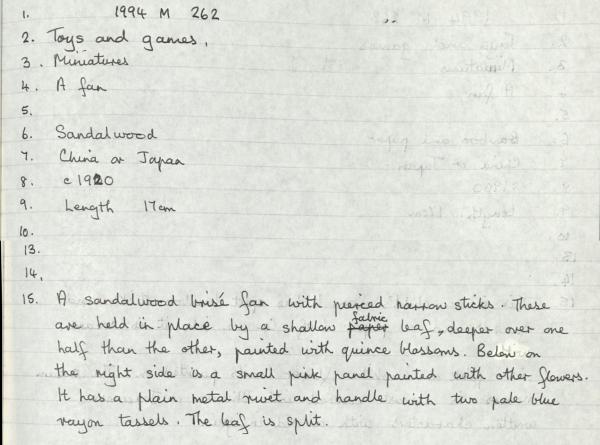 1. 1994 M 262
2. Toys and games.
3. Miniatures
4. A fan
5.
6. Sandalwood
7. China or Japan
8. c 1920
9. Length 17cm
10.
13.
14.
15. A sandalwood brisé fan with pierced narrow sticks. These
are held in place by a shallow paper fabric leaf, deeper over one
half than the other, painted with quince blossoms. Below on
the right side is a small pink panel painted with other flowers.
It has a plain metal rivet and handle with two pale blue
rayon tassels. The leaf is split.